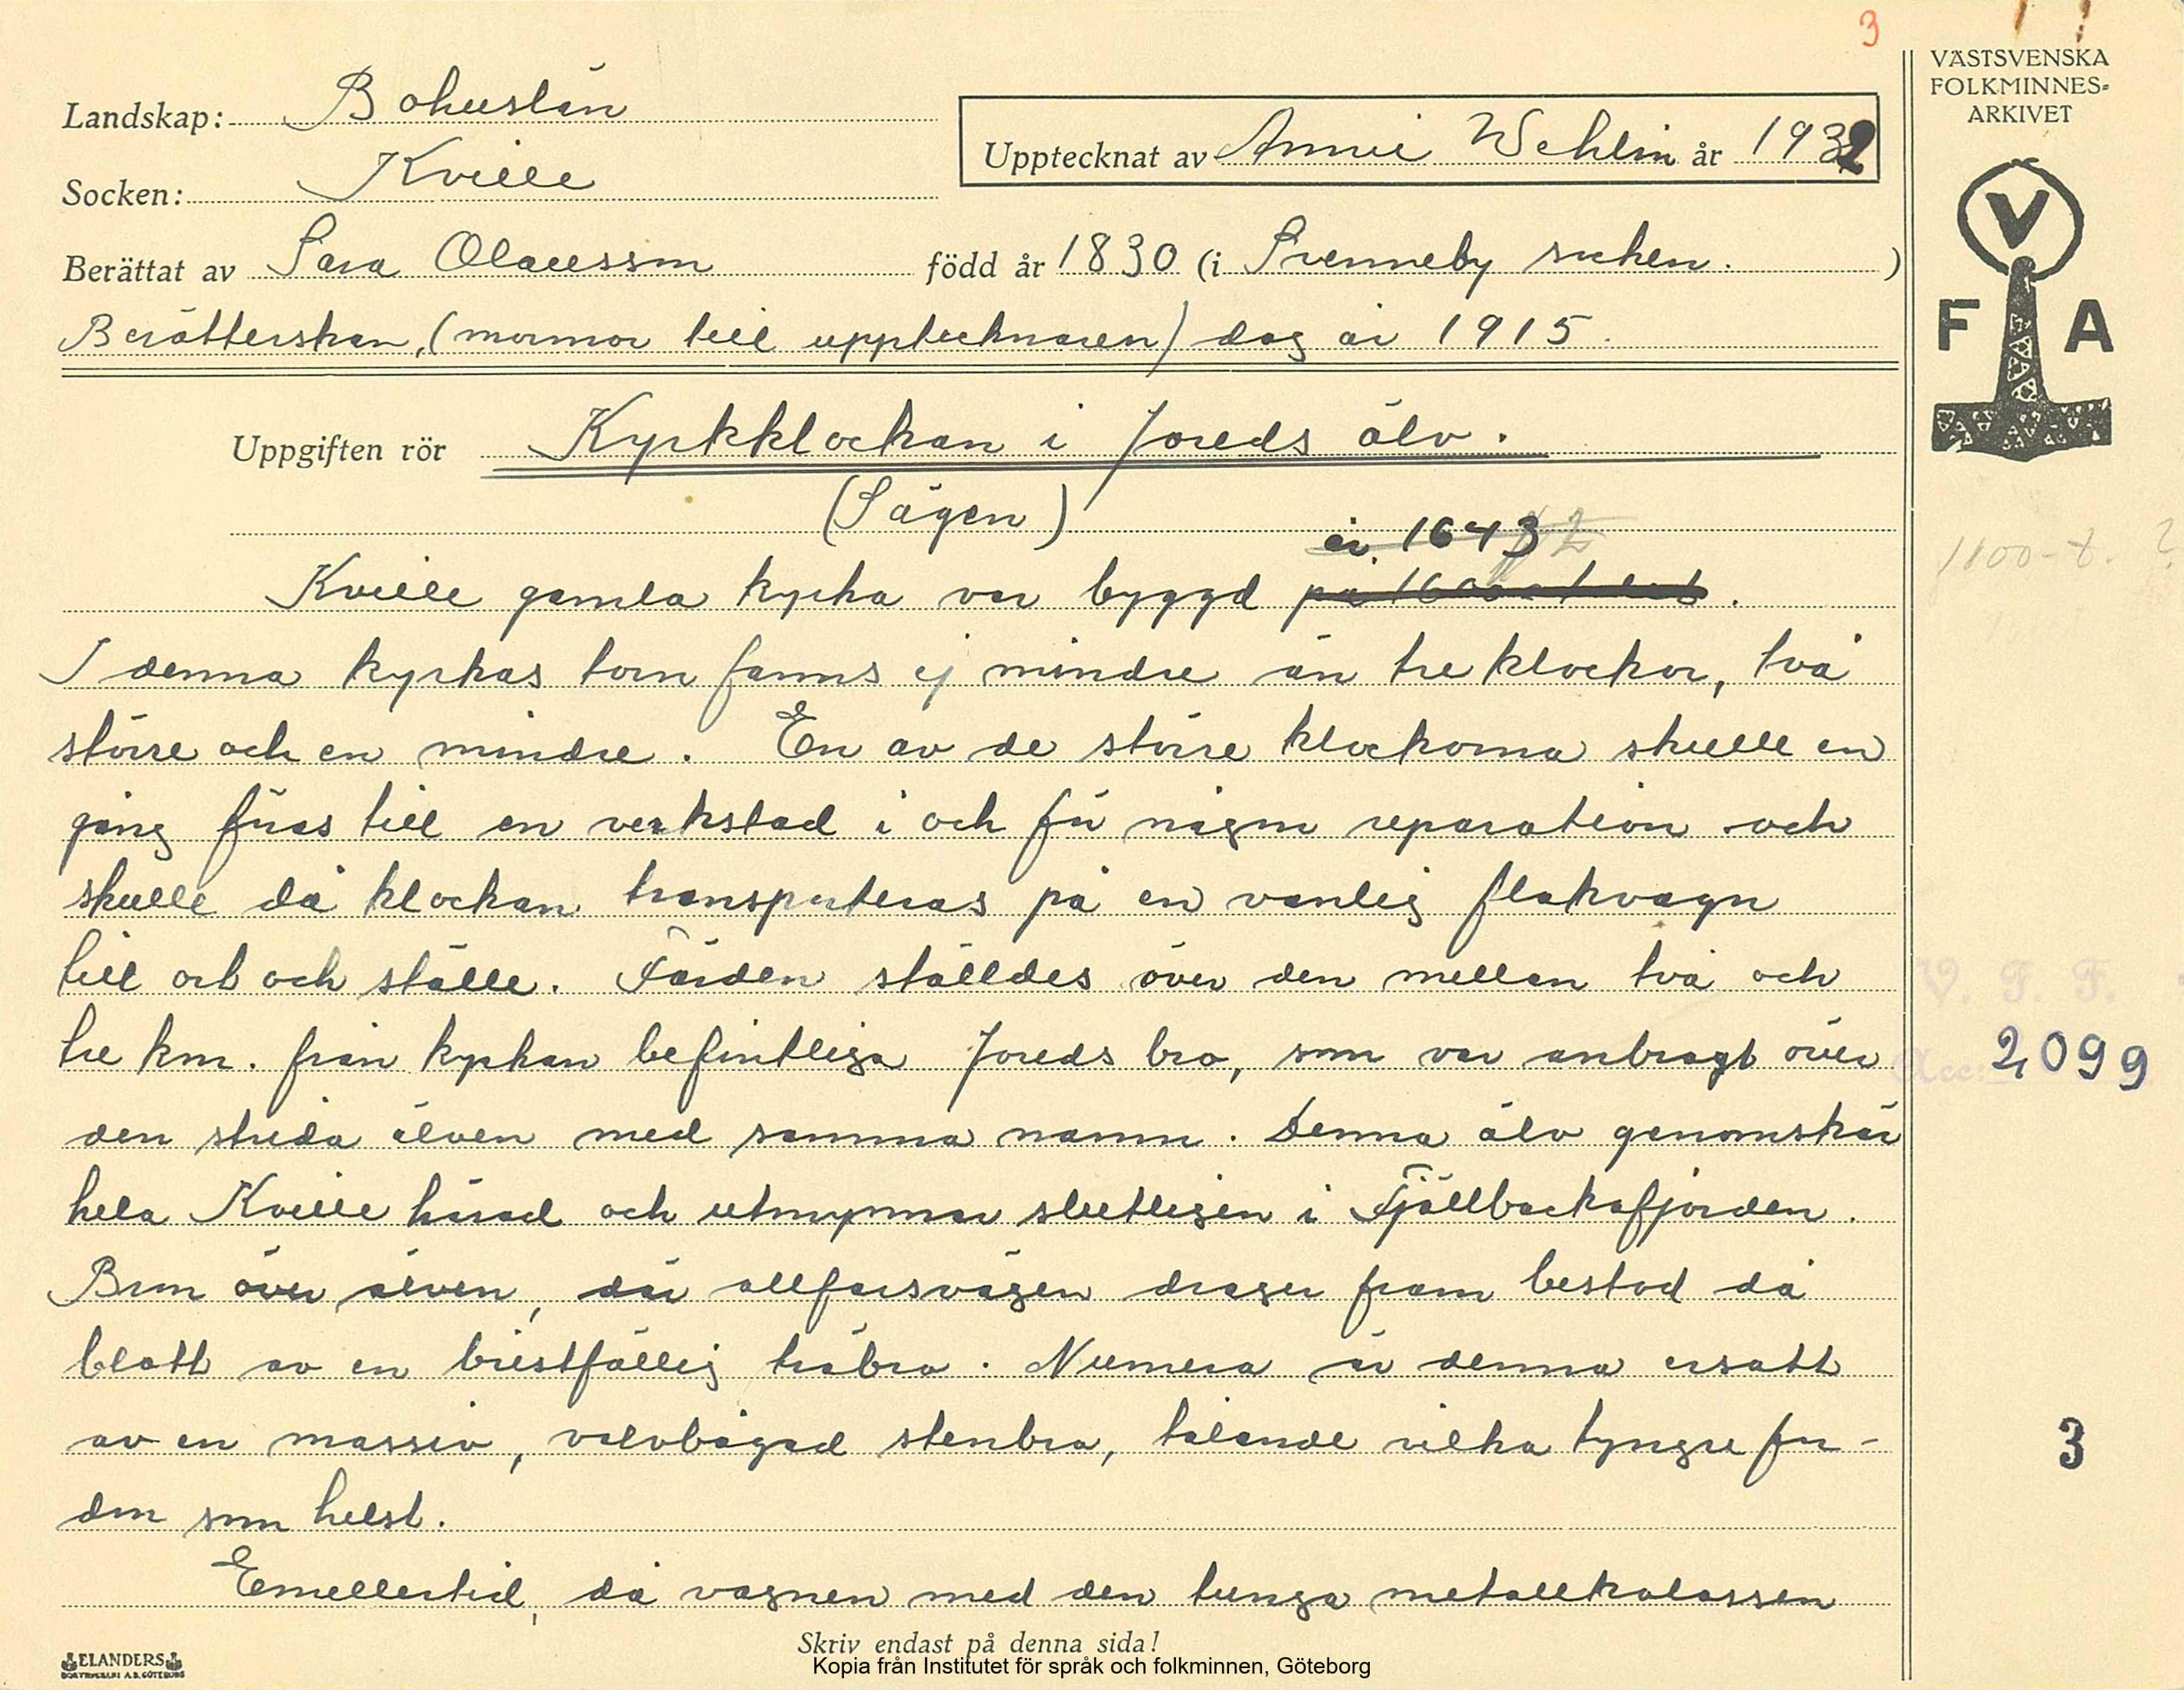 3
VÄSTSVENSKA
FOLKMINNES-
ARKIVET
Landskap: Bohuslän
Upptecknat av Annie Wehlin år 1932
Socken: Kville
Berättat av Sara Olausson född år 1830 (i Svenneby socken. )
Berätterskan, (mormor till upptecknaren) dog år 1915.
V
F A
Uppgiften rör Kyrkklockan i Joreds älv.
(Sägen)
år 1643
1100-t. ?
Kville gamla kyrka var byggd på 1600-talet.
I denna kyrkas torn fanns ej mindre än tre klockor, två
större och en mindre. En av de större klockorna skulle en
gång föras till en verkstad i och för någon reparation och
skulle då klockan transporteras på en vanlig flakvagn
till ort och ställe. Färden ställdes över den mellan två och
tre km. från kyrkan befintliga Joreds bro, som var anbragt över
den strida älven med samma namn. Denna älv genomskär
hela Kville härad och utmynnar slutligen i Fjällbackafjorden.
Bron över älven, där allfarsvägen drager fram bestod då
blott av en bristfällig träbro. Numera är denna ersatt
av en massiv, valvbågad stenbro, tålande vilka tyngre for-
don som helst.
Emellertid, då vagnen med den tunga metallkolossen
V. F. F.
Acc: 2099
3
Skriv endast på denna sida!
ELANDERS
BOKTRYCKERI A.B. GÖTEBORG
Kopia från Institutet för språk och folkminnen, Göteborg